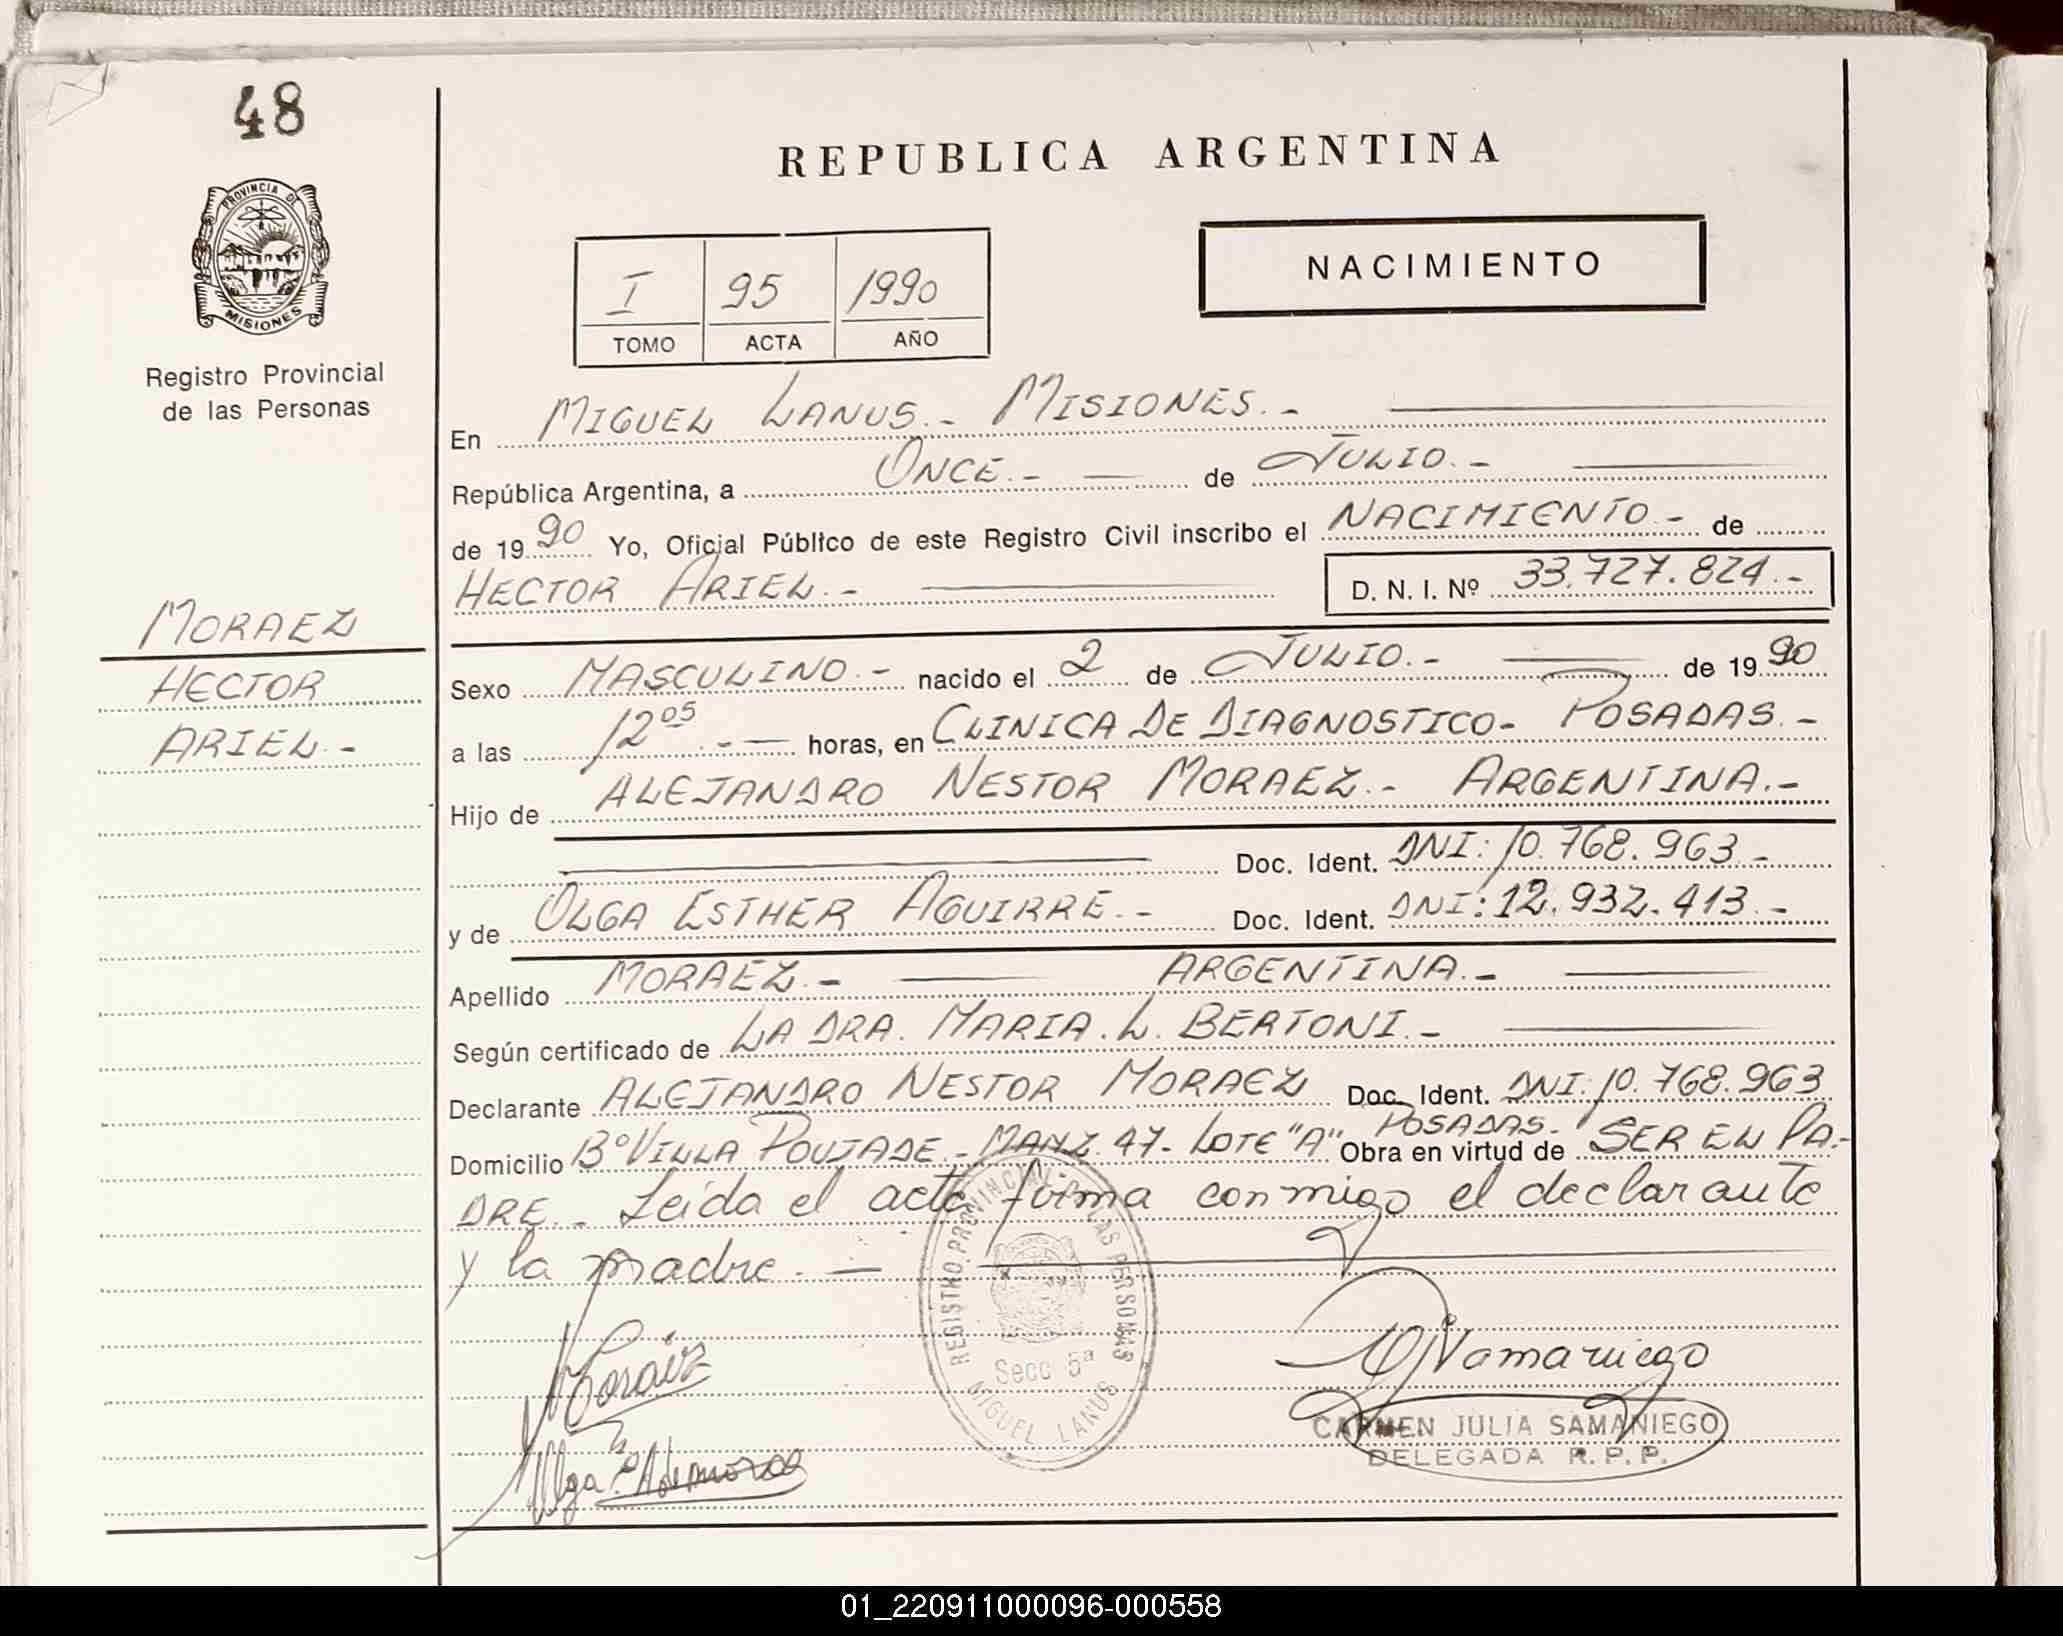 48
PROVINCIA DE
MISIONES
Registro Provincial
de las Personas
MORAEZ
HECTOR
ARIEL.-
REPUBLICA ARGENTINA
I 95 1990
TOMO ACTA AÑO
NACIMIENTO
En MIGUEL LANUS.- MISIONES.-
República Argentina, a ONCE.- de JULIO.-
de 1990 Yo, Oficial Público de este Registro Civil inscribo el NACIMIENTO.- de
HECTOR ARIEL.- D. N. I. Nº 33.727.824.-
Sexo MASCULINO.- nacido el 2 de JULIO.- de 1990
a las 12 05.- horas, en CLINICA DE DIAGNOSTICO- POSADAS.-
Hijo de ALEJANDRO NESTOR MORAEZ.- ARGENTINA.-
Doc. Ident. DNI: 10.768.963.-
y de OLGA ESTHER AGUIRRE.- Doc. Ident. DNI: 12.932.413.-
Apellido MORAEZ.- ARGENTINA.-
Según certificado de LA DRA. MARIA. L. BERTONI.-
Declarante ALEJANDRO NESTOR MORAEZ Doc. Ident. DNI: 10.768.963
Domicilio Bº VILLA POUJADE.- MANZ. 47- LOTE "A" POSADAS.- Obra en virtud de SER EL PA-
DRE.- Leida el acta firma conmigo el declarante
y la madre.-
REGISTRO PROVINCIAL DE LAS PERSONAS
Secc 5ª
MIGUEL LANUS
Samaniego
CARMEN JULIA SAMANIEGO
DELEGADA R.P.P.
Olga
01_220911000096-000558